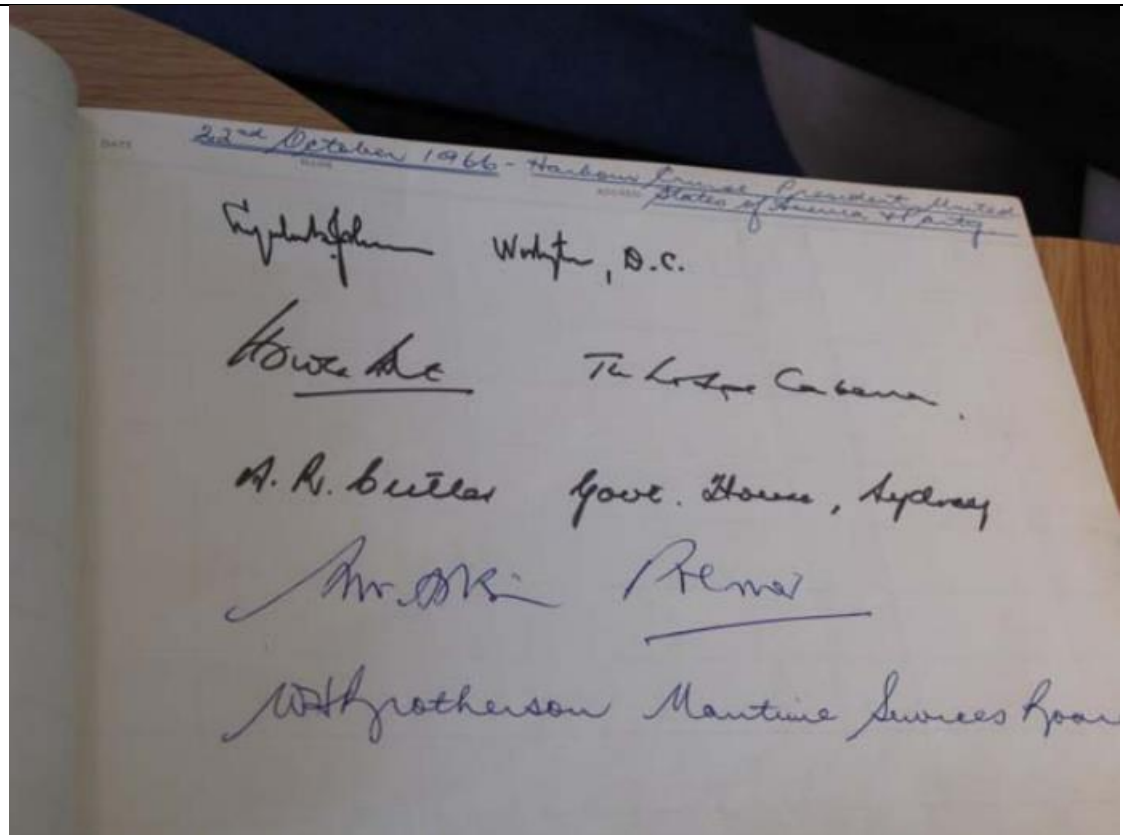 DATE
22nd October 1966 - Harbour Cruise President United
NAME
ADDRESS
States of America & Party
Lyndon B. Johnson Washington, D.C.
The Lodge Canberra.
A. R. Cutler Govt. House, Sydney
Askin Premier
W H Brotherson Maritime Services Boar